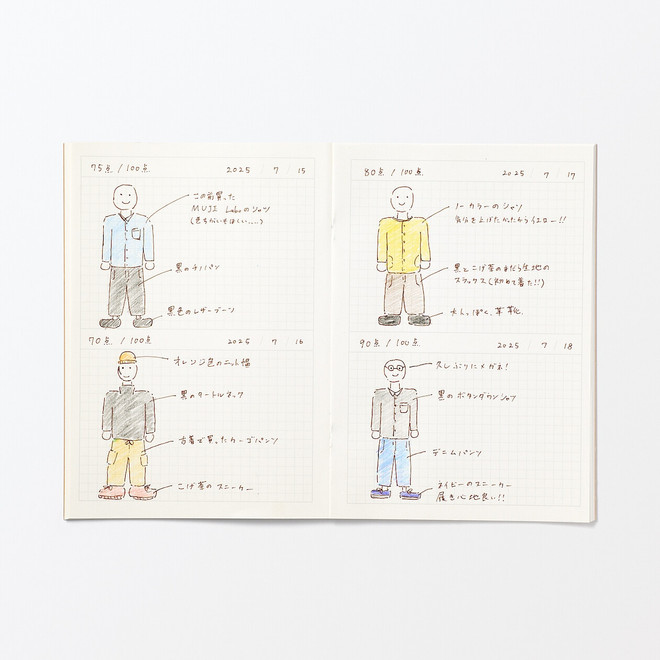 75点 / 100点 2025 / 7 / 15
この前買った
MUJI Laboのシャツ
(色ちがいもほしい.....)
黒のチノパン
黒色のレザーブーツ
70点 / 100点 2025 / 7 / 16
オレンジ色のニット帽
黒のタートルネック
古着で買ったカーゴパンツ
こげ茶のスニーカー
80点 / 100点 2025 / 7 / 17
ノーカラーのシャツ
気分を上げたかったからイエロー!!
黒とこげ茶のまだら生地の
スラックス(初めて着た!!)
大人っぽく、革靴
90点 / 100点 2025 / 7 / 18
久しぶりにメガネ!
黒のボタンダウンシャツ
デニムパンツ
ネイビーのスニーカー
履き心地良い!!